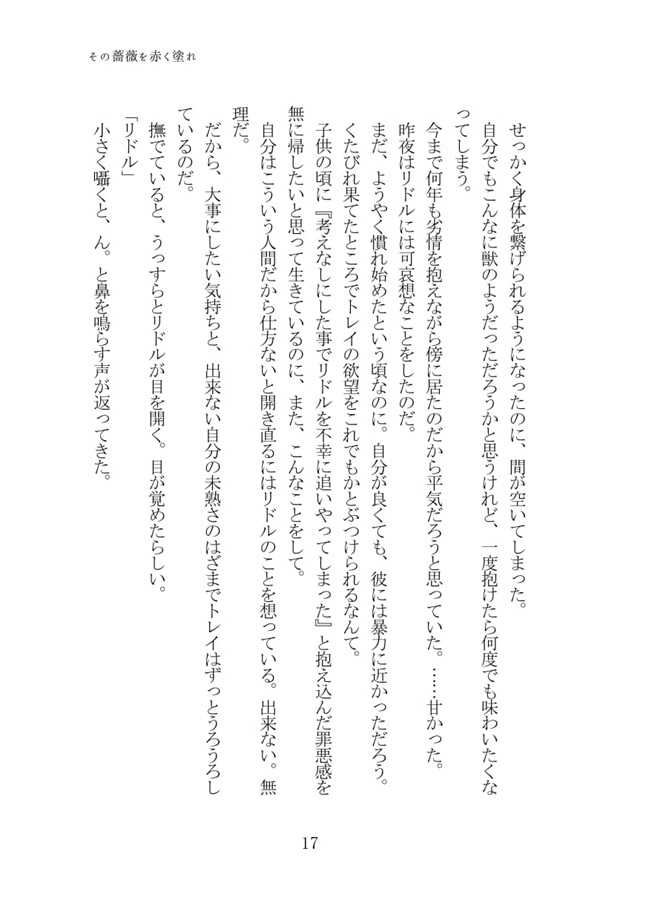 その薔薇を赤く塗れ
せっかく身体を繋げられるようになったのに、間が空いてしまった。
自分でもこんなに獣のようだっただろうかと思うけれど、一度抱けたら何度でも味わいたくな
ってしまう。
今まで何年も劣情を抱えながら傍に居たのだから平気だろうと思っていた。……甘かった。
昨夜はリドルには可哀想なことをしたのだ。
まだ、ようやく慣れ始めたという頃なのに。自分が良くても、彼には暴力に近かっただろう。
くたびれ果てたところでトレイの欲望をこれでもかとぶつけられるなんて。
子供の頃に『考えなしにした事でリドルを不幸に追いやってしまった』と抱え込んだ罪悪感を
無に帰したいと思って生きているのに、また、こんなことをして。
自分はこういう人間だから仕方ないと開き直るにはリドルのことを想っている。出来ない。無
理だ。
だから、大事にしたい気持ちと、出来ない自分の未熟さのはざまでトレイはずっとうろうろし
ているのだ。
撫でていると、うっすらとリドルが目を開く。目が覚めたらしい。
「リドル」
小さく囁くと、ん。と鼻を鳴らす声が返ってきた。
17